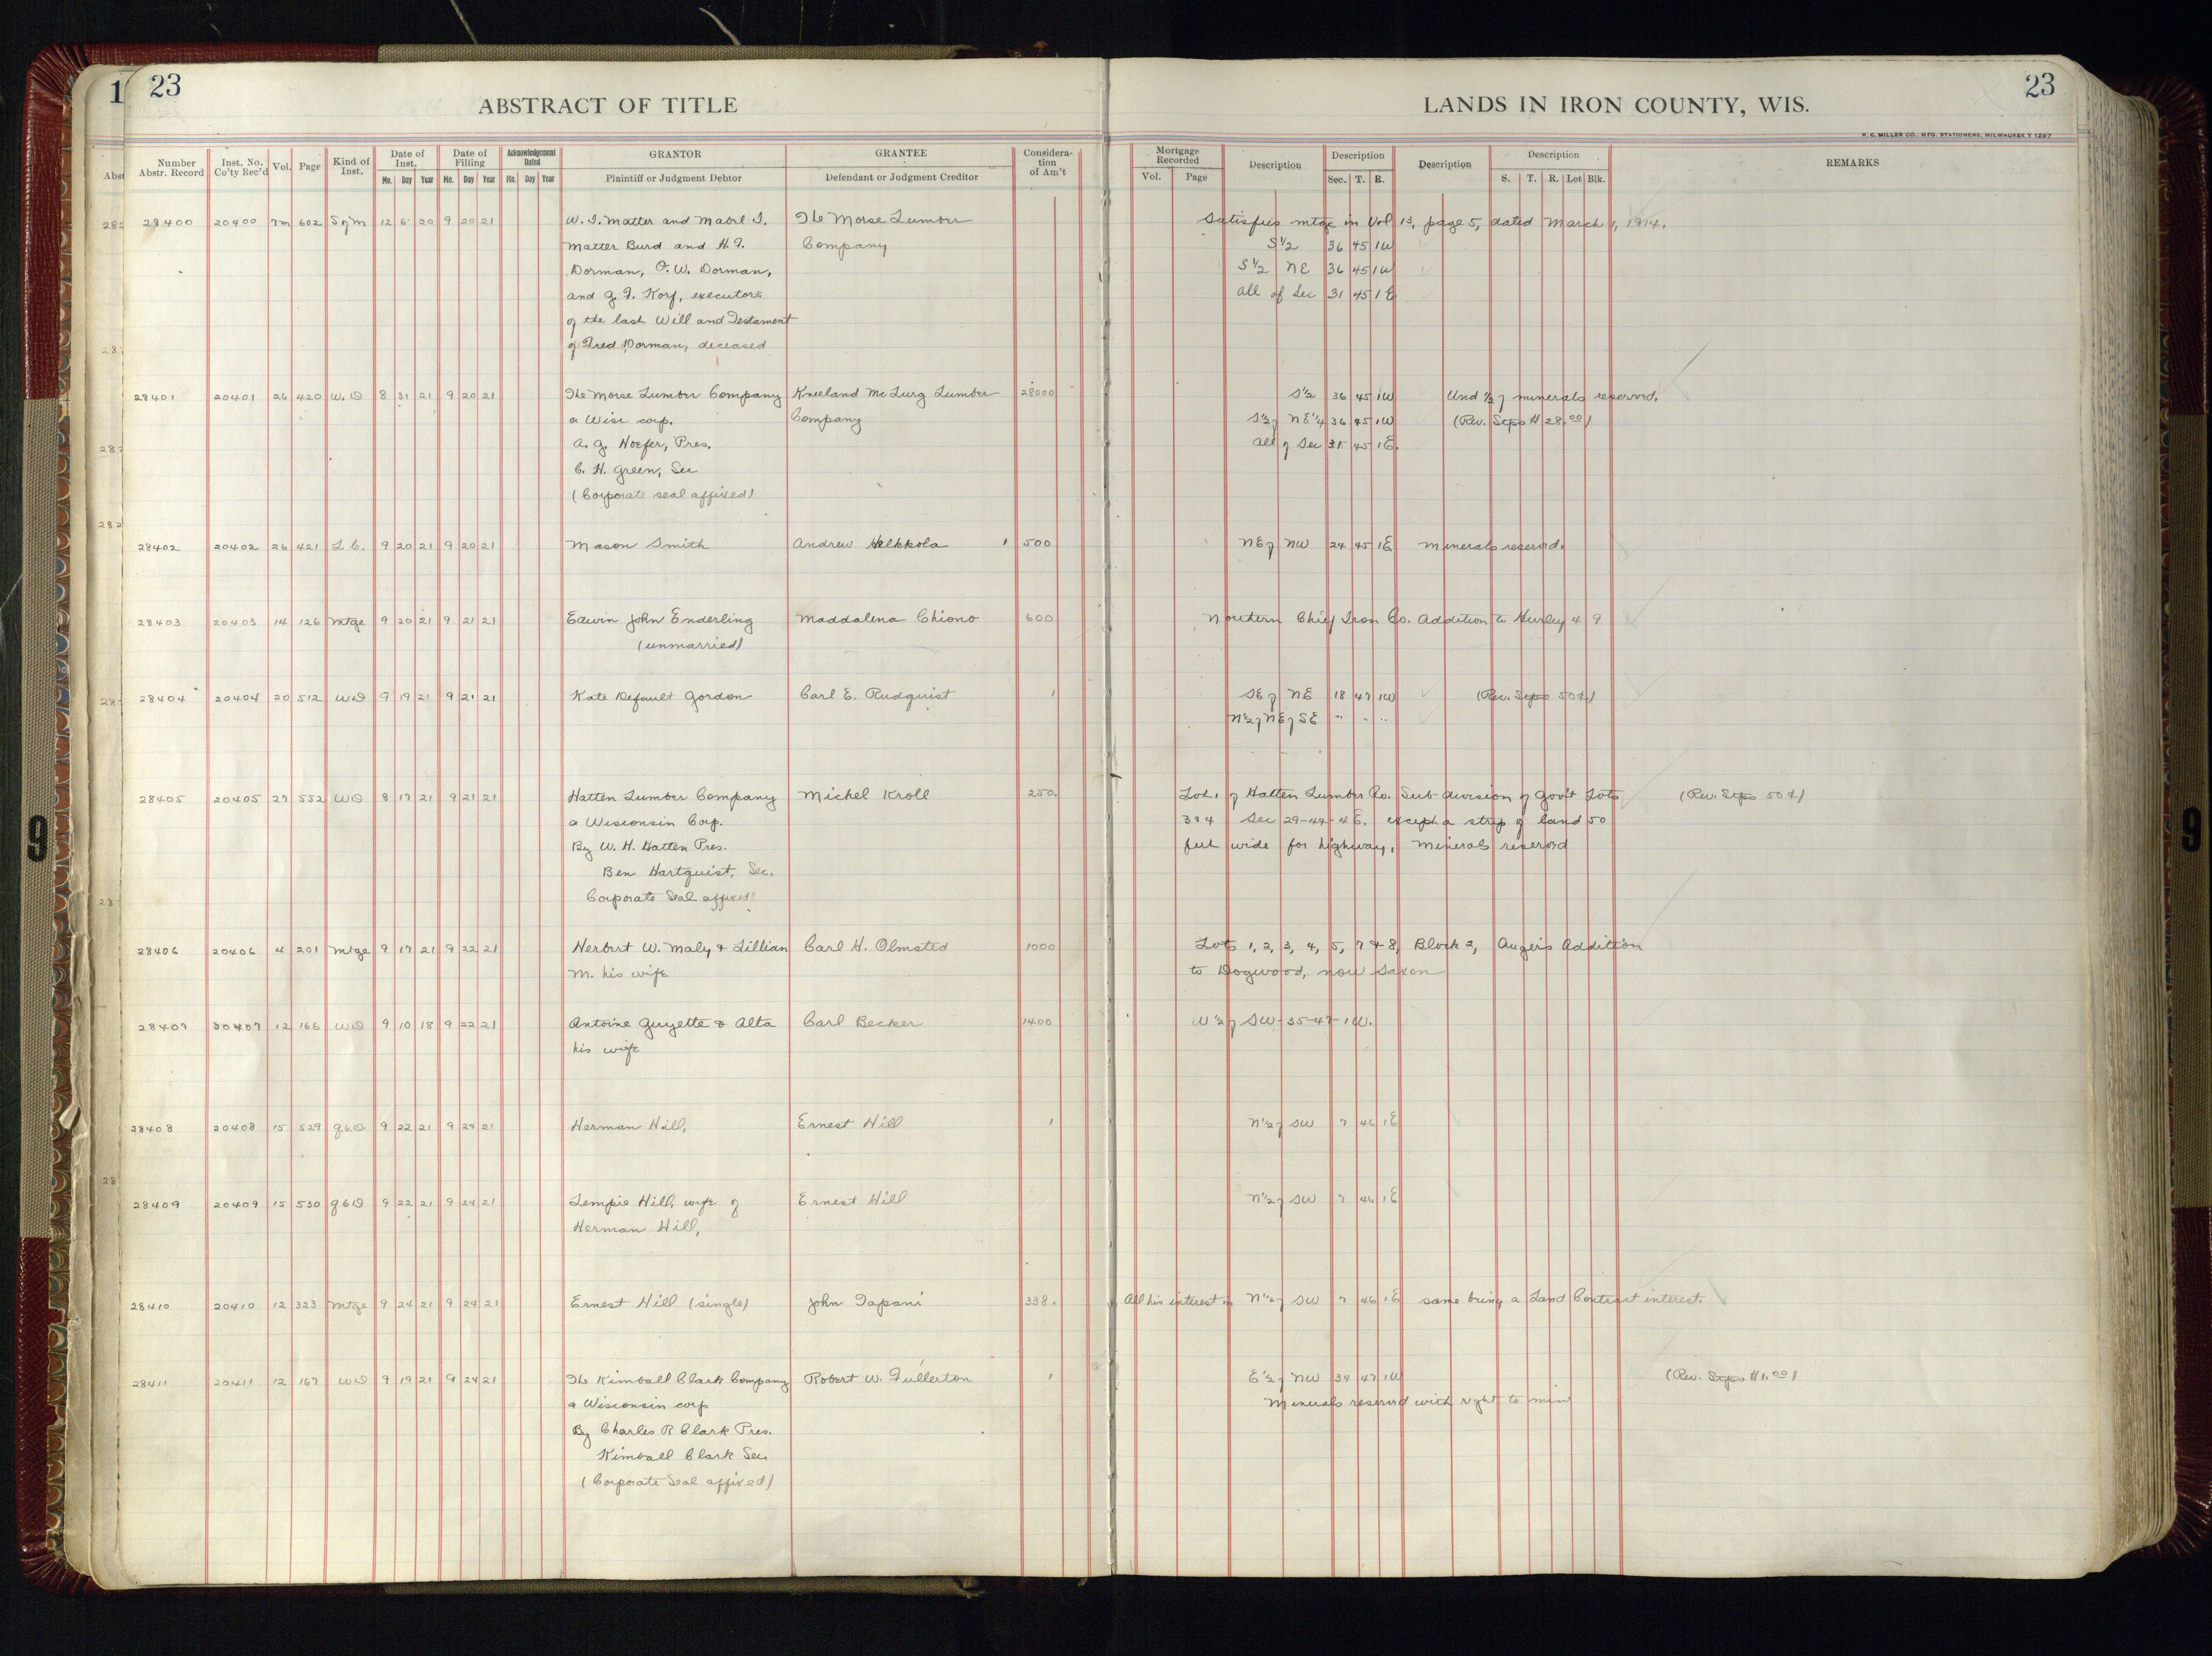 23
ABSTRACT OF TITLE
LANDS IN IRON COUNTY, WIS.
23
H. C. MILLER CO., MFG. STATIONERS, MILWAUKEE
Number Abstr. Record | Inst. No. Co'ty Rec'd | Vol. | Page | Kind of Inst. | Date of Inst. Mo. Day Year | Date of Filling Mo. Day Year | Acknowledgement Dated Mo. Day Year | GRANTOR Plaintiff or Judgment Debtor | GRANTEE Defendant or Judgment Creditor | Consideration of Am't | Mortgage Recorded Vol. Page | Description | Description Sec. T. R. | Description | Description S. T. R. Lot Blk. | REMARKS
28400 20400 7m 602 S of M 12 6 20 9 20 21 W. I. Matter and Mabel I. The Morse Lumber Satisfies mtge in Vol 13, page 5, dated March 1, 1914.
Matter Burd and H. F. Company S 1/2 36 45 1W
Dorman, O. W. Dorman, S 1/2 NE 36 45 1W
and G. F. Korf, executors all of Sec 31 45 1E
of the last Will and Testament
of Fred Dorman, deceased
28401 20401 26 420 W.D 8 31 21 9 20 21 The Morse Lumber Company Kneeland McLurg Lumber 28000 S 1/2 36 45 1W Und 1/2 of minerals reserved.
a Wisc corp. Company S 1/2 of NE 1/4 36 45 1W (Rev. Stps $28.00)
A. G. Hoefer, Pres. All of Sec 31 45 1E.
C. H. Green, Sec
(Corporate seal affixed)
28402 20402 26 421 L.C. 9 20 21 9 20 21 Mason Smith Andrew Helkkola 1 500 NE of NW 24 45 1E Minerals reserved.
28403 20403 14 126 Mtge 9 20 21 9 21 21 Edwin John Enderling Maddalena Chiono 600 Northern Chief Iron Co. Addition to Hurley 4 9
(unmarried)
28404 20404 20 512 WD 9 19 21 9 21 21 Kate Default Gordon Carl E. Rudquist 1 SE of NE 18 47 1W (Rev. Stps 50¢)
N 1/2 of NE of SE " " "
28405 20405 27 552 WD 8 17 21 9 21 21 Hatten Lumber Company Michel Kroll 250. Lot 1 of Hatten Lumber Co. Sub-division of Gov't Lots (Rev. Stps 50¢)
a Wisconsin Corp. 3 & 4 Sec 29-44-4E. except a strip of land 50
By W. H. Hatten Pres. feet wide for highway, Minerals reserved
Ben Hartquist, Sec.
Corporate Seal affixed
28406 20406 4 201 Mtge 9 17 21 9 22 21 Herbert W. Maly & Lillian Carl H. Olmsted 1000 Lots 1, 2, 3, 4, 5, 7 & 8, Block 2, Angers Addition
M. his wife to Dogwood, now Saxon
28407 20407 12 166 WD 9 10 18 9 22 21 Antoine Guyette & Alta Carl Becker 1400 W 1/2 of SW-35-47-1W.
his wife
28408 20408 15 529 QCD. 9 22 21 9 24 21 Herman Hill, Ernest Hill 1 N 1/2 of SW 7 46 1E
28409 20409 15 530 QCD 9 22 21 9 24 21 Lempie Hill, wife of Ernest Hill N 1/2 of SW 7 46 1E
Herman Hill,
28410 20410 12 323 Mtge 9 24 21 9 24 21 Ernest Hill (single) John Tapani 338. All his interest in N 1/2 of SW 7 46 1E same being a Land Contract interest.
28411 20411 12 167 WD 9 19 21 9 24 21 The Kimball Clark Company Robert W. Fullerton 1 E 1/2 of NW 34 47 1W (Rev. Stps $1.00)
a Wisconsin corp Minerals reserved with right to mine
By Charles R Clark Pres.
Kimball Clark Sec.
(Corporate Seal affixed)
9
9